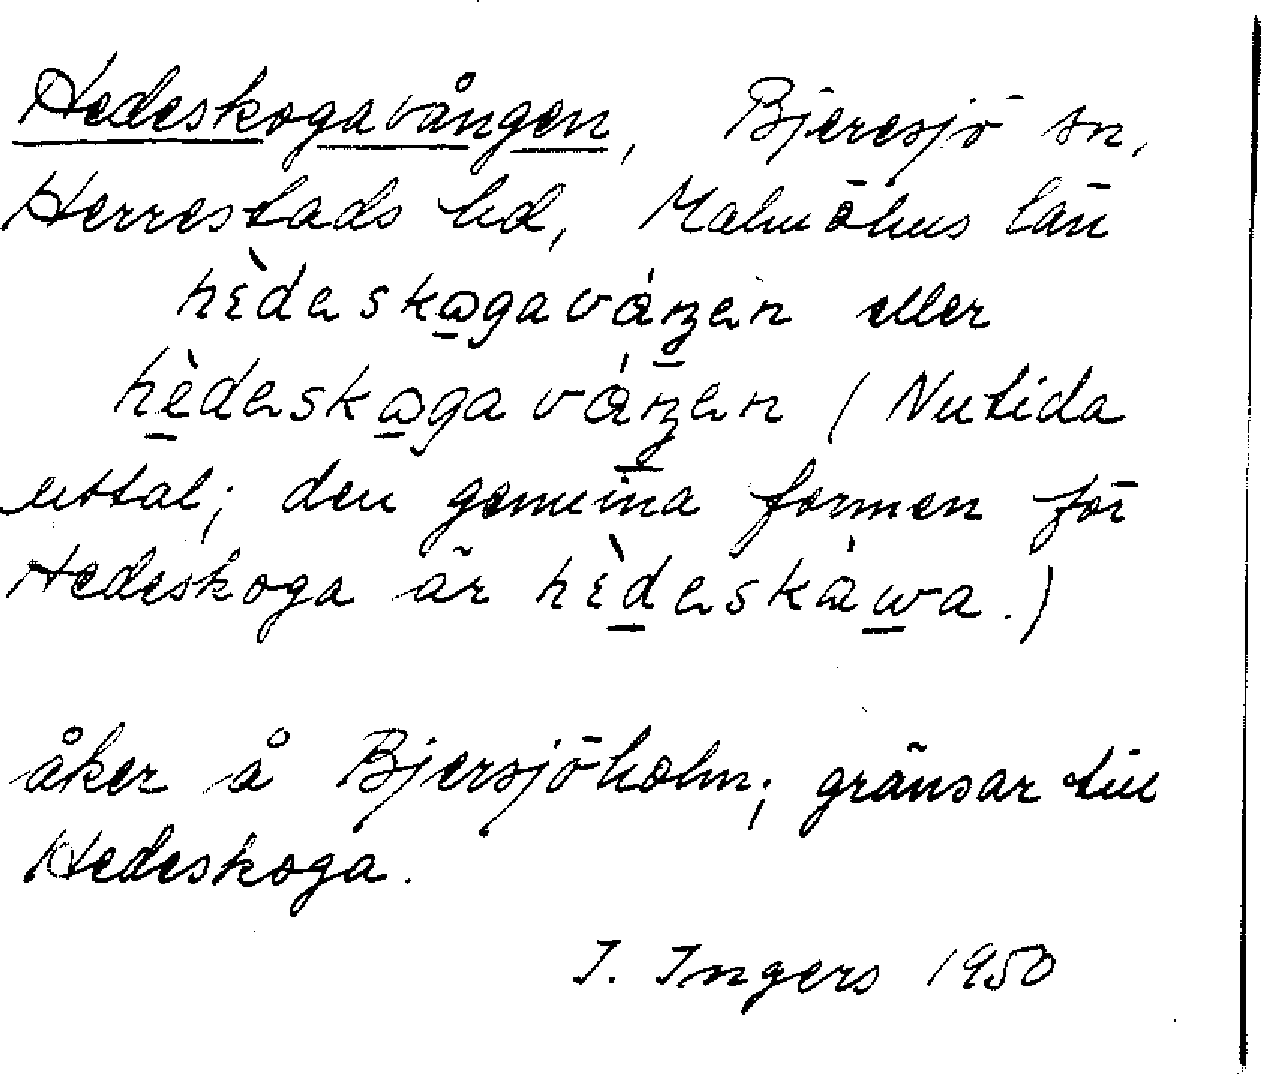 Hedeskogavången, Bjeresjö sn,
Herrestads hd, Malmöhus län
hὲdeskꙍgaváŋen eller
hèdeskꙍgaváŋen (Nutida
uttal; den genuina formen för
Hedeskoga är hὲdeskàwa.)
åker å Bjersjöholm; gränsar till
Hedeskoga.
I. Ingers 1950